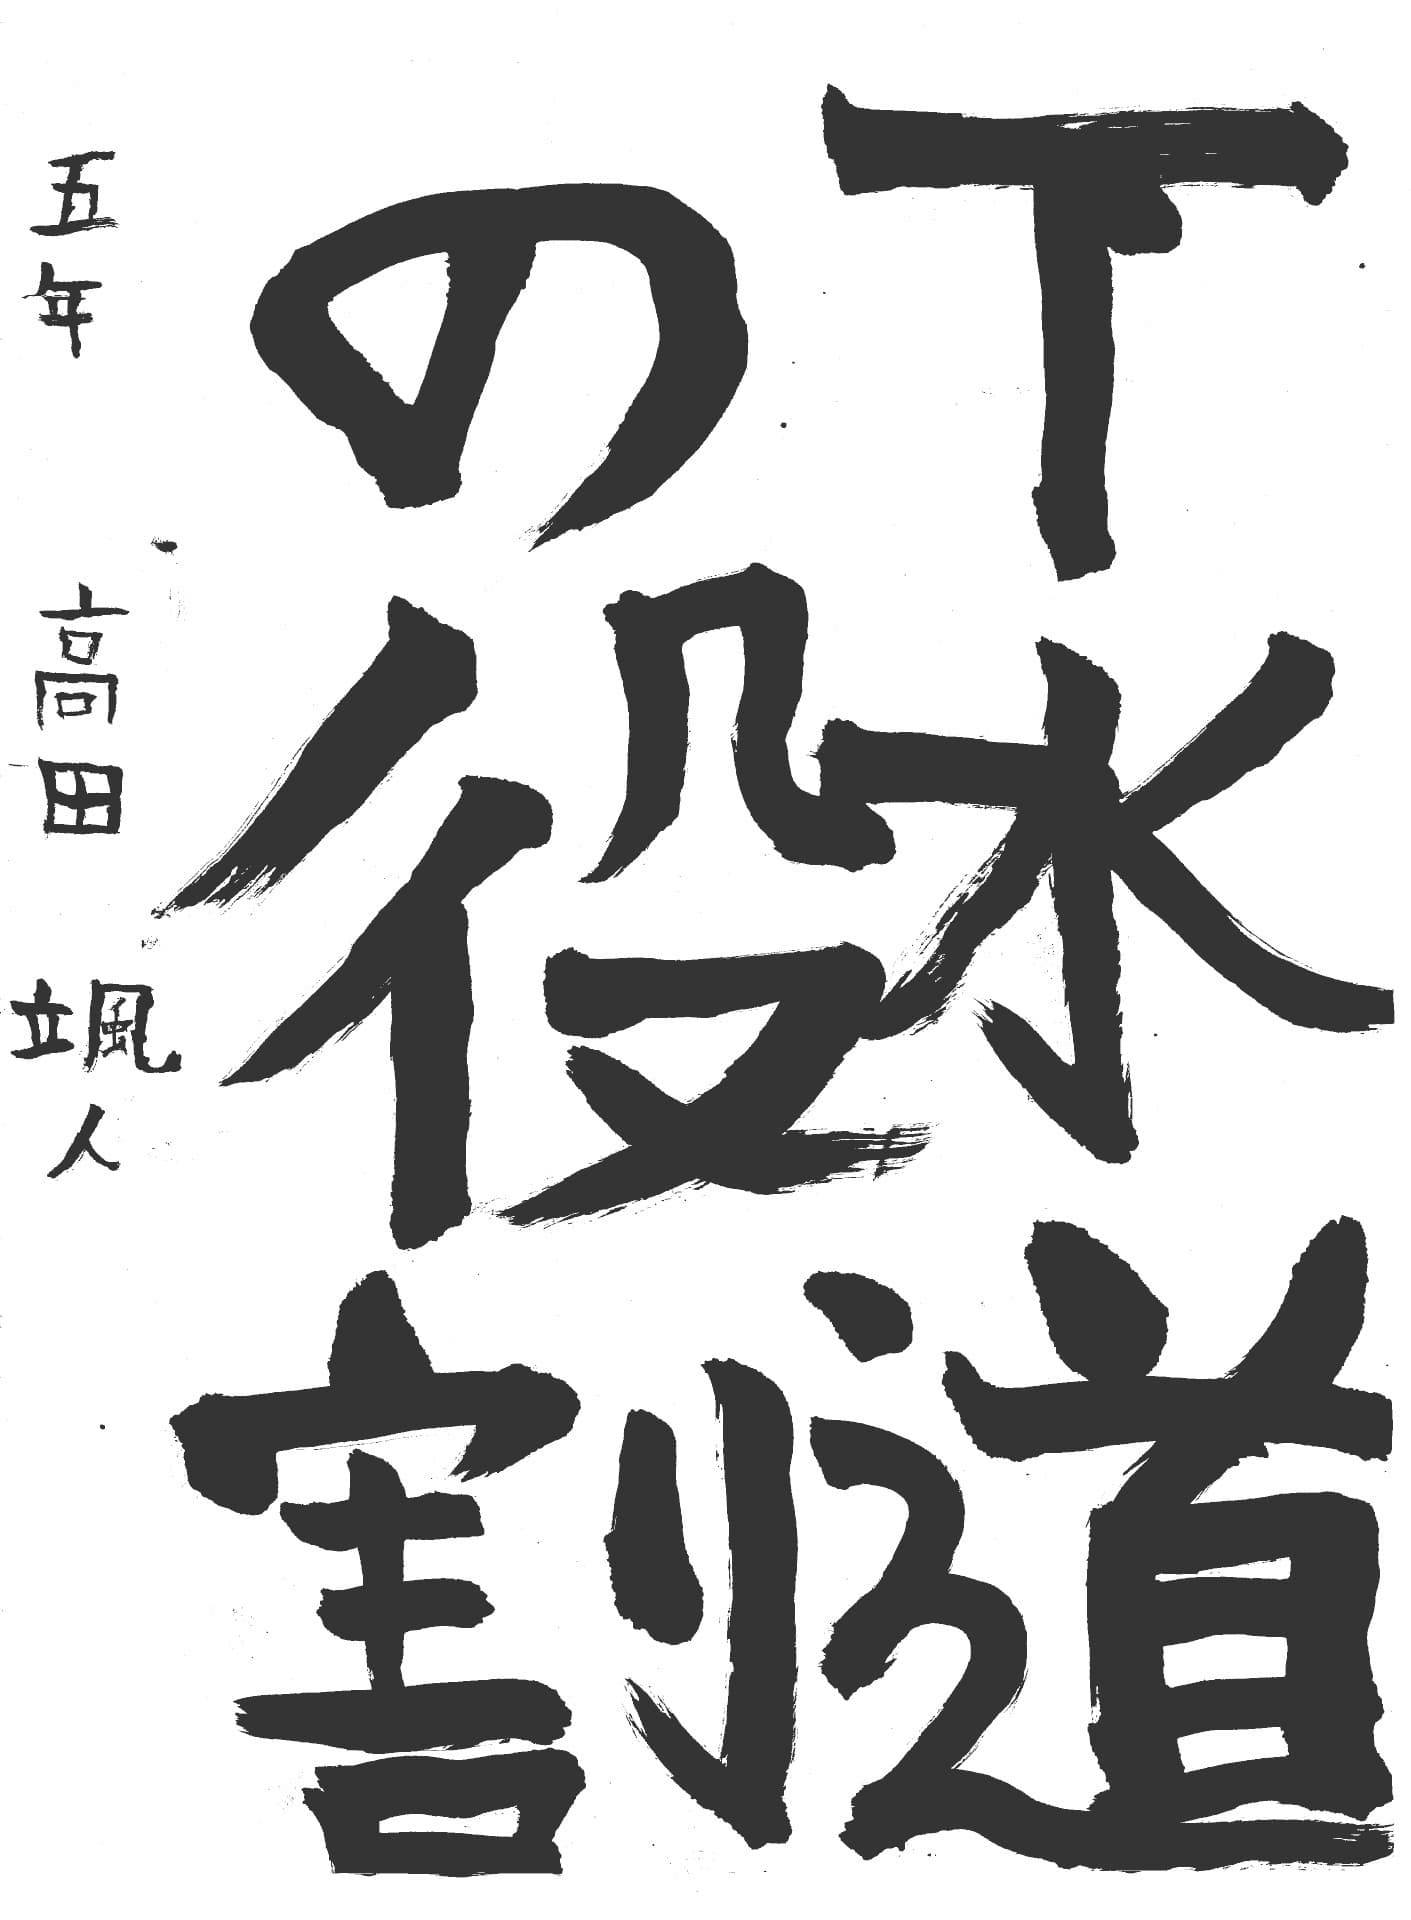 下水道
の役割
五年 高田 颯人